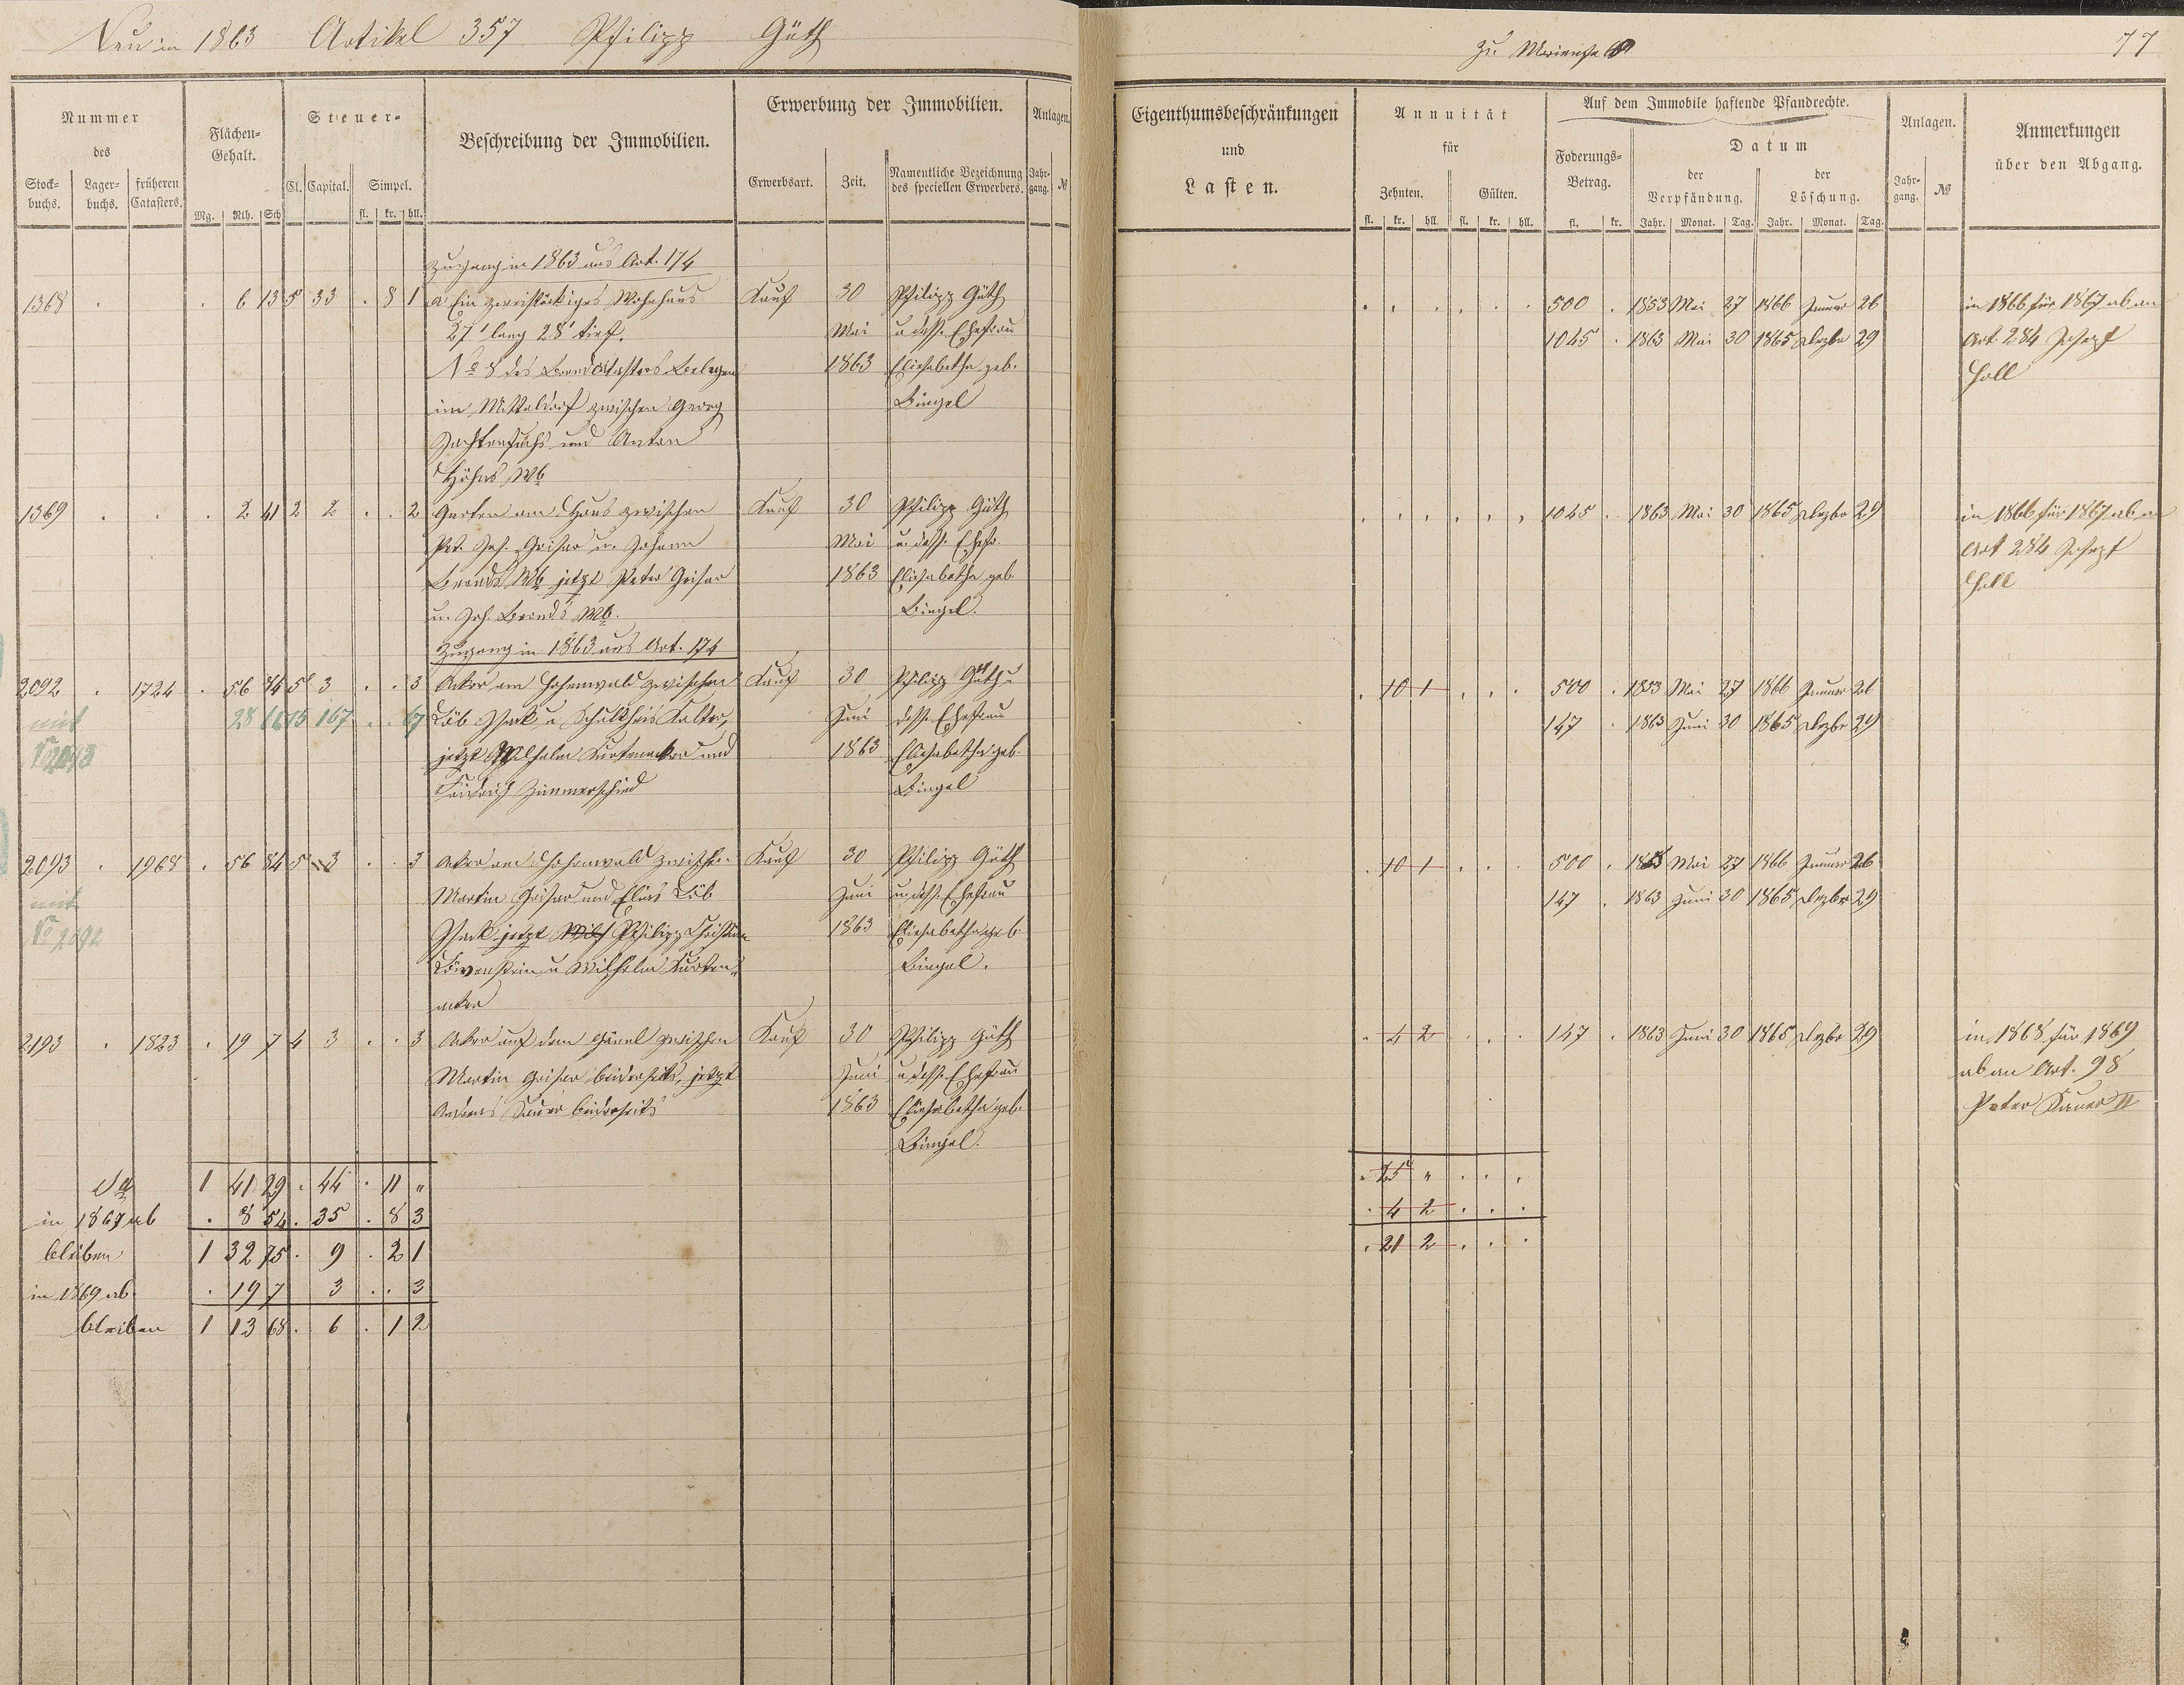 Neu in 1863 Artikel 357 Philipp Güth
Nummer
des
Stock-
buchs.
Lager-
buchs.
früheren
Catasters.
Flächen-
Gehalt.
Mg. Rth. Sch
Steuer-
Cl. Capital. Simpel.
fl. kr. hll.
Beschreibung der Immobilien.
Erwerbung der Immobilien.
Erwerbsart. Zeit.
Namentliche Bezeichnung
des speciellen Erwerbers.
Anlagen.
Jahr-
gang. №
Zugang in 1863 aus Art. 174
1368 . . 6 13 5 33 . 8 1 a Ein zweistöckiges Wohnhaus Kauf 30 Philipp Güth
27' lang 28' tief. Mai u dess. Ehefrau
No 8 des Brandcatasters Belegen 1863 Eliesabetha geb.
im Mitteldorf zwischen Georg Bingel
und Anton
Höhns Wb
1369 . . . 2 41 2 2 . . 2 Garten am Haus zwischen Kauf 30 Philipp Güth
Pet. Jos. Griesar u. Johann Mai u. dess. Ehefr.
Brands Wb jetzt Peter Griesar 1863 Eliesabetha geb.
u. Joh. Brands Wb. Bingel.
Zugang in 1863 aus Art. 174
2092 . 1724 . 56 84 5 3 . . 3 Acker am Hohenwald zwischen Kauf 30 Philipp Güth u
mit 28 67 Löb Isack u Schultheis Kalter, Juni dess. Ehefrau
No 2093 jetzt Wilhelm Kurtenacker und 1863 Eliesabetha geb.
Friedrich Zimmerschied Bingel
2093 . 1968 . 56 84 5 3 . . 3 Acker am Hohenwald zwischen Kauf 30 Philipp Güth
mit Martin Griesar und Elias Löb Juni u. dess. Ehefrau
No 2092 Isack jetzt Philipp Christian 1863 Eliesabetha geb.
Löwenstein u Wilhelm Kurten- Bingel.
acker
2193 . 1823 . 19 7 4 3 . . 3 Acker auf dem zwischen Kauf 30 Philipp Güth
Martin Griesar beiderseits, jetzt Juni u dess. Ehefrau
Andreas Sauer beiderseits 1863 Eliesabetha geb.
Bingel.
1 41 29 . 44 . 11 "
in 1867 ab . 8 54 . 35 . 8 3
bleiben 1 32 75 . 9 . 2 1
in 1869 ab . 19 7 3 . . 3
bleiben 1 13 68 . 6 . 1 2
77
Eigenthumsbeschränkungen
und
Lasten.
Annuität
für
Zehnten. Gülten.
fl. kr. hll. fl. kr. hll.
Auf dem Immobile haftende Pfandrechte.
Foderungs-
Betrag.
fl. kr.
Datum
der
Verpfändung.
der
Löschung.
Jahr. Monat. Tag. Jahr. Monat. Tag.
Anlagen.
Jahr-
gang. №
Anmerkungen
über den Abgang.
. . . . . . 500 . 1853 Mai 27 1866 Januar 26 in 1866 für 1867 ab an
1045 . 1863 Mai 30 1865 Dezbr 29 Art. 284 Joseph
Holl
. . . . . . 1045 . 1863 Mai 30 1865 Dezbr 29 in 1866 für 1867 ab an
Art 284 Joseph
Holl
. 10 1 . . . 500 . 1853 Mai 27 1866 Januar 26
147 . 1863 Juni 30 1865 Dezbr 29
. 10 1 . . . 500 . 1853 Mai 27 1866 Januar 26
147 . 1863 Juni 30 1865 Dezbr 29
. 4 2 . . . 147 . 1863 Juni 30 1865 Dezbr 29 in 1868 für 1869
ab an Art. 98
Peter Sauer II
. 25 " . . .
. 4 2 . . .
. 21 2 . . .